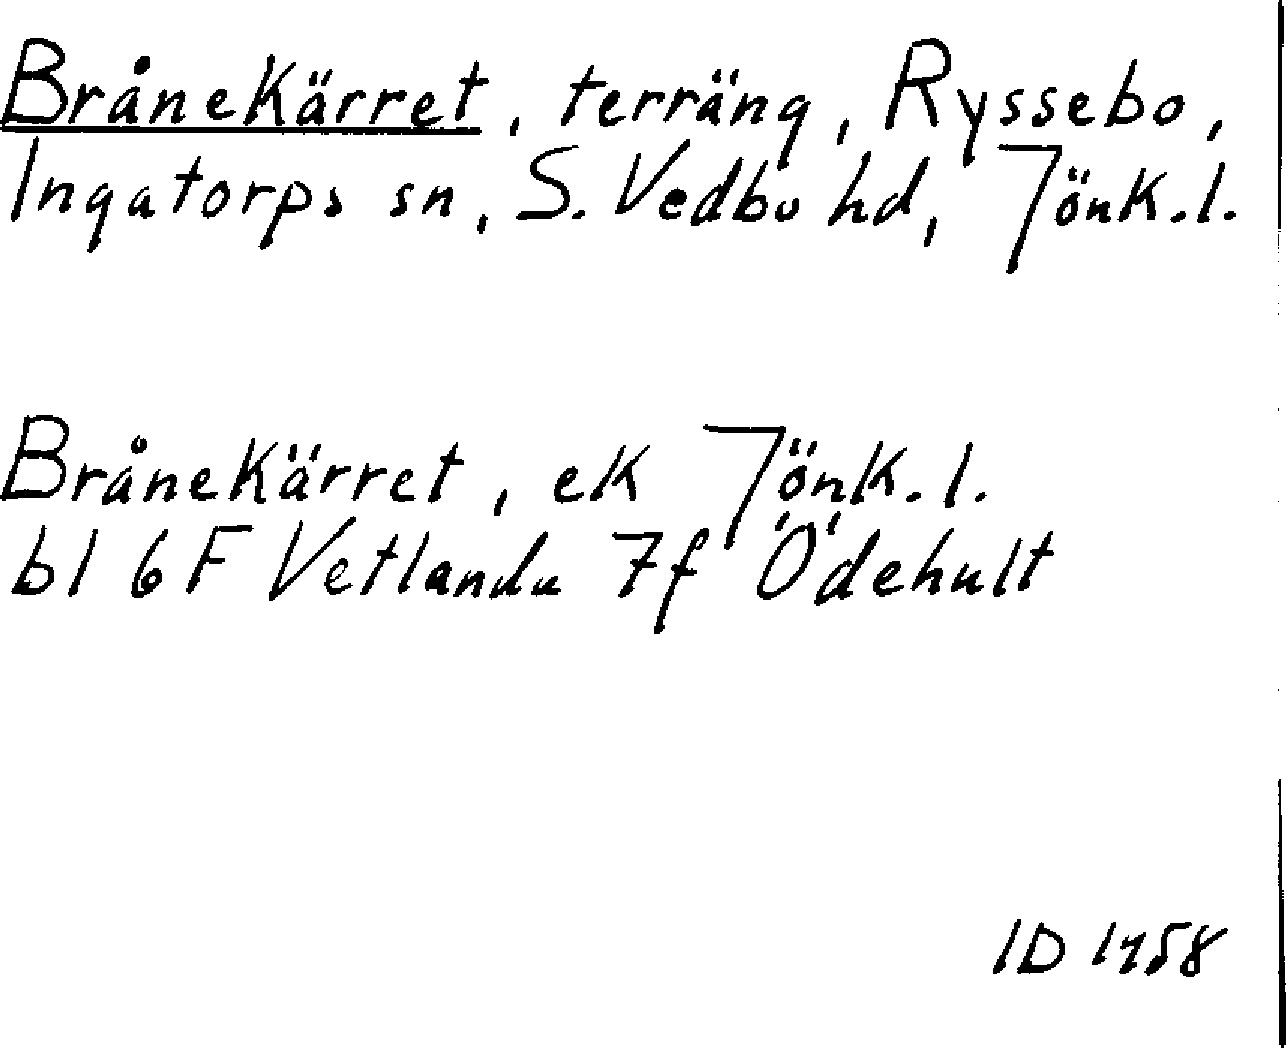 Brånekärret, terräng, Ryssebo,
Ingatorps sn, S. Vedbo hd, Jönk. l.
Brånekärret, ek Jönk. l.
bl 6 F Vetlanda 7f Ödehult
ID 1958